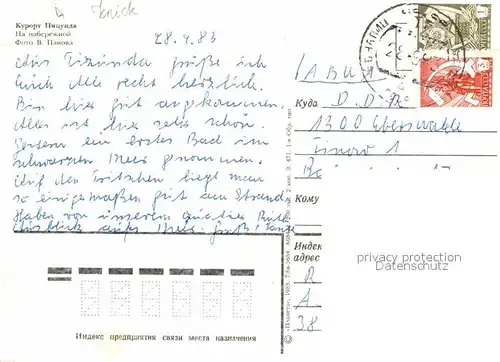 knick
Курорт Пицунда
На набережной
Фото В. Панова
28.4.83
Aus Pizunda grüße ich
Euch Alle recht herzlich.
Bin hier gut angekommen.
Alles ist hier sehr schön.
Gestern ein erstes Bad im
schwarzen Meer genommen.
Auf den Pritschen liegt man
so einigermaßen gut am Strand.
Haben von unserem
Ausblick aufs Meer. Gruß
АВИА
Куда D.D.R.
1300 Eberswalde
Finow 1
Кому
Индекс
адрес
privacy protection
Datenschutz
R
A
38
Индекс предприятия связи места назначения